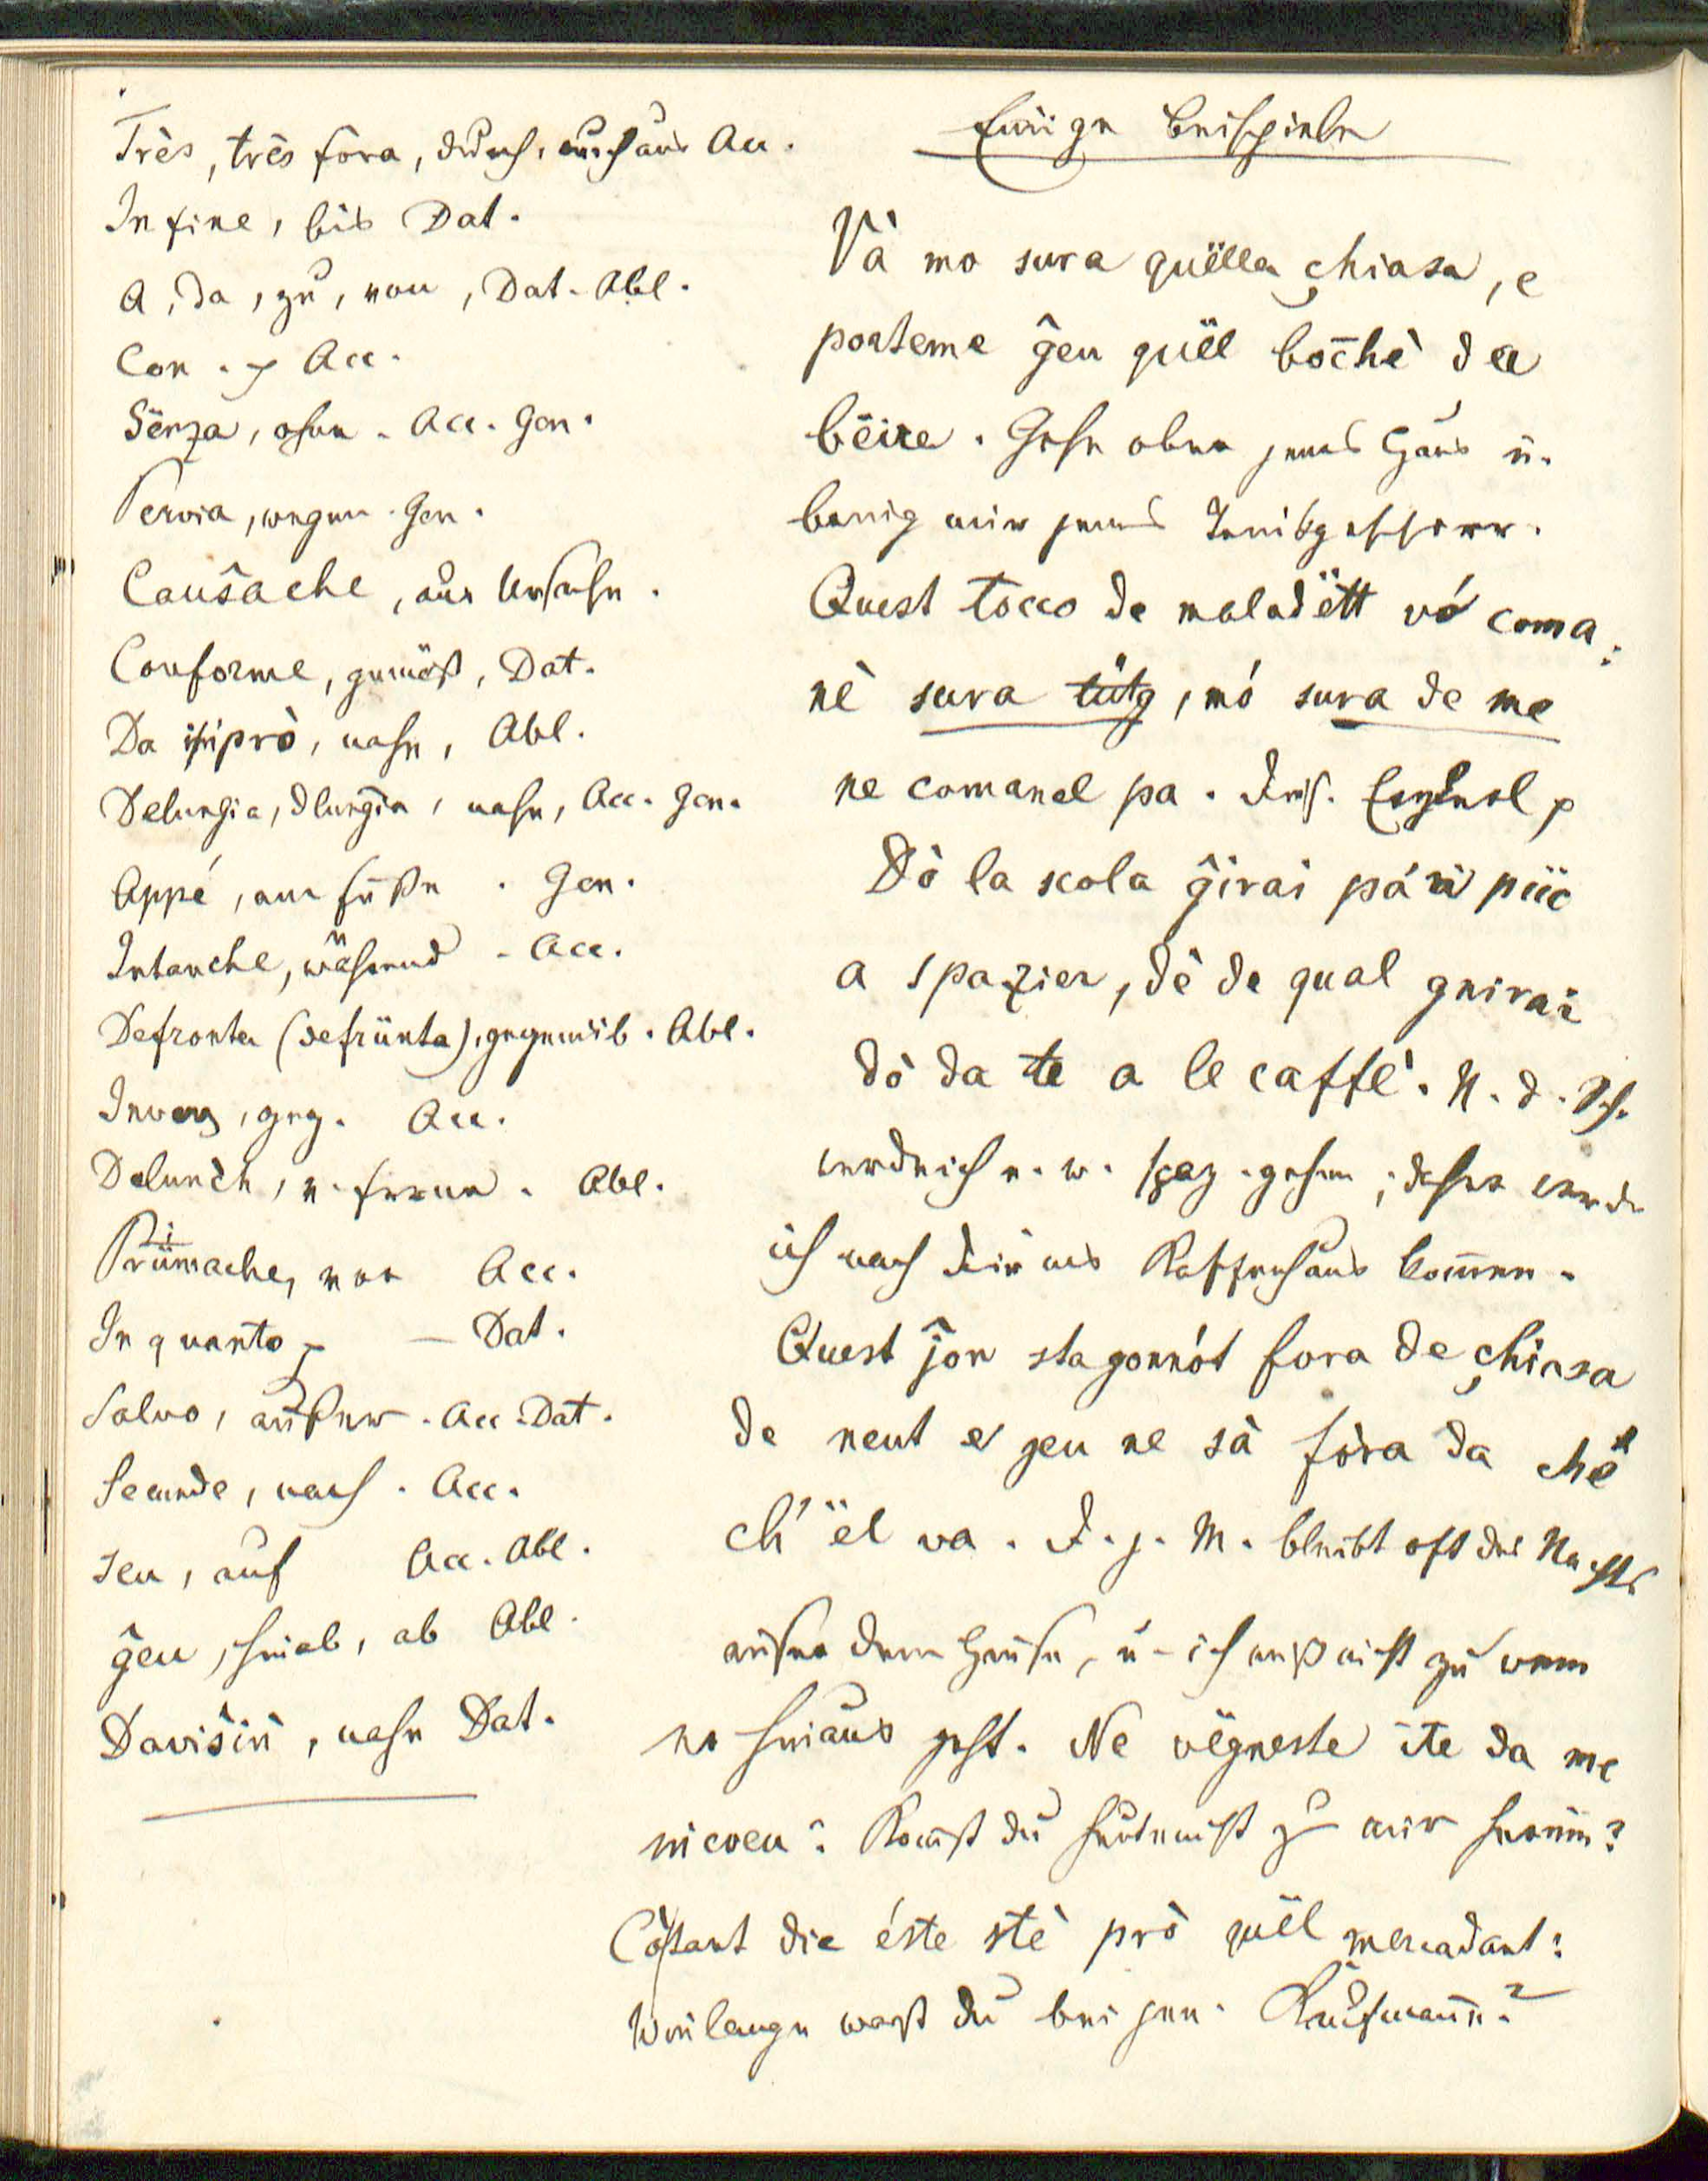 Très, très fora, durch, durchaus Acc.
Infine, bis Dat.
A, da, zu, von, Dat. Abl.
Con. Acc.
Sënza, ohne. Acc. Gen.
Pervia, wegen. Gen.
Causache, aus Ursache.
Conforme, gemäß, Dat.
Da iſiprò, nahe, Abl.
Delungia, dlungia, nahe, Acc. Gen.
Appé, am Fuße. Gen.
Intanche, während. Acc.
Defronta (defrünta), gegenüb. Abl.
Invers, geg. Acc.
Delunch, v. ferne. Abl.
Prümache, vor Acc.
In quanto — Dat.
Salvo, außer. Acc. Dat.
Secunde, nach. Acc.
seu, auf Acc. Abl.
ĝeu, hinab, ab Abl.
Daviŝin, nahe Dat.
Einige Beispiele
Và mo sura quëlla çhiasa, e
porteme ĝeu quël boc̄hè da
bëire. Gehe ober jenes Haus u.
bring mir jenes Trinkgeschirr.
Quest tocco de maladëtt vó coma:
nè sura tütg, mó sura de me
ne comanel pa.
Dò la scola ĝirai pá n' püc
a spazier, dè de qual gnirai
dò da te a le caffè. N. d. Sch.
werde ich e. w. spaz. gehen; daher werde
ich nach dir ins Kaffeehaus kommen.
Quest ĵon sta gonnót fora de çhiasa
de neut e jeu ne sà fòra da chë
ch' ël va. D. j. M. bleibt oft des Nachts
außer dem Hause, u. ich weiß nicht zu wem
er hinaus geht. Ne vëgneste ite da me
incoeu? Komst du heute nicht zu mir herein?
Còtant die éste stè prò quël mercadant?
Wie lange warst du bei jen. Kaufmann?